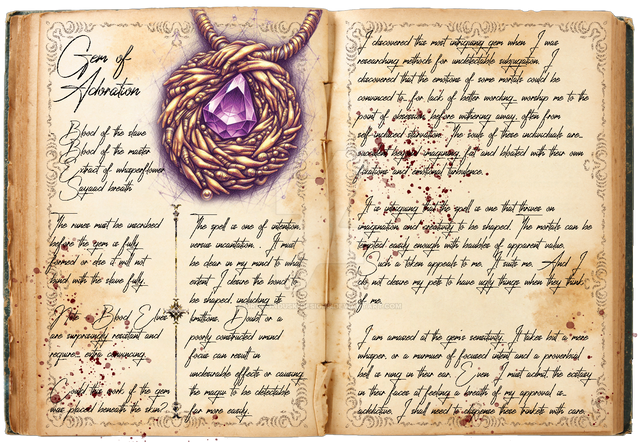 Gem of
Adoration
Blood of the slave
Blood of the master
Extract of whisperflower
Eayaad breath
The runes must be inscribed
before the gem is fully
formed or else it will not
bond with the slave fully.
Note: Blood Elves
are surprisingly resistant and
require extra convincing.
Could this work if the gem
was placed beneath the skin?
The spell is one of intention
versus incantation. I must
be clear in my mind to what
extent I desire the bond to
be shaped, including its
limitations. Doubt or a
poorly constructed mind
focus can result in
undesirable effects or causing
the magic to be detectable
far more easily.
I discovered this most intriguing gem when I was
researching methods for undetectable subjugation. I
discovered that the emotions of some mortals could be
convinced to, for lack of better wording, worship me to the
point of obsession before withering away, often from
self-induced starvation. The souls of these individuals are
succulent beyond imagining, fat and bloated with their own
fixations and emotional turbulence.
It is intriguing that the spell is one that thrives on
imagination and creativity to be shaped. The mortals can be
tempted easily enough with baubles of apparent value.
Such a token appeals to me. It suits me. And I
do not desire my pets to have ugly things when they think
of me.
I am amazed at the gems sensitivity. It takes but a mere
whisper or a murmer of focused intent and a proverbial
bell is rung in their ear. Even I must admit the ecstasy
in their faces at feeling a breath of my approval is
addictive. I shall need to dispense these trinkets with care.